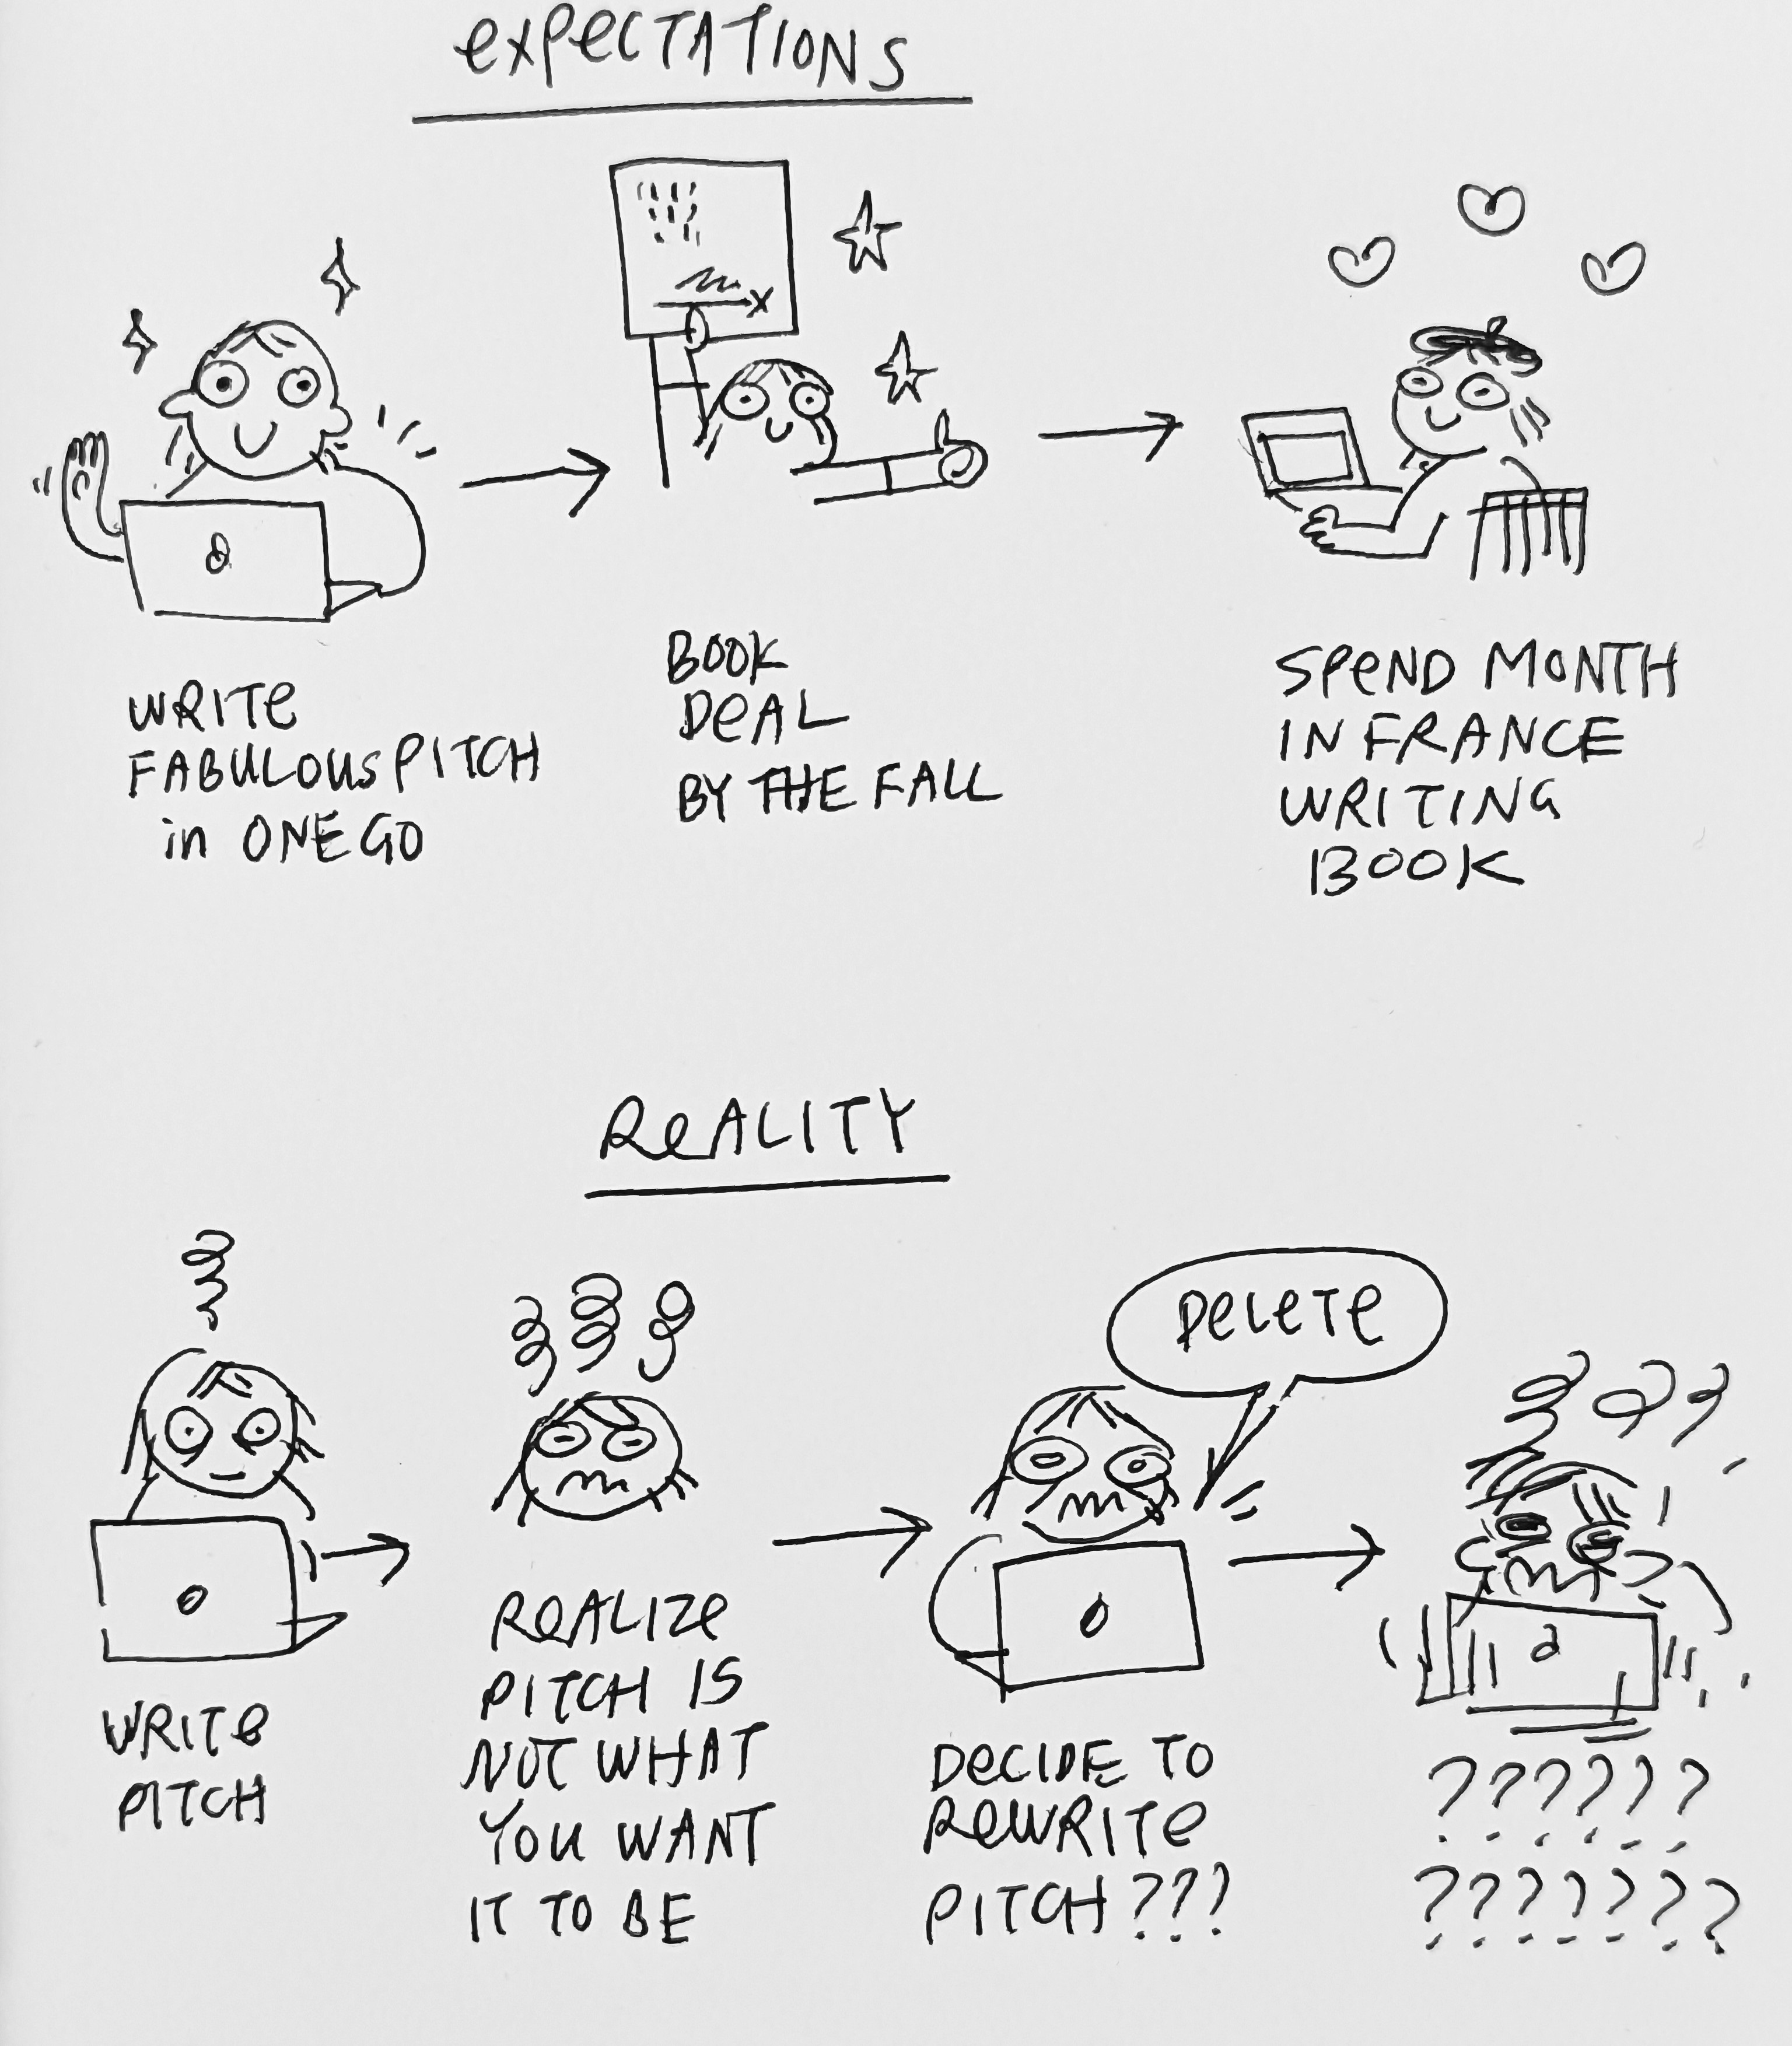 EXPECTATIONS
WRITE
FABULOUS PITCH
in ONE GO
BOOK
DEAL
BY THE FALL
SPEND MONTH
IN FRANCE
WRITING
BOOK
REALITY
WRITE
PITCH
REALIZE
PITCH IS
NOT WHAT
YOU WANT
IT TO BE
DELETE
DECIDE TO
REWRITE
PITCH???
??????
???????